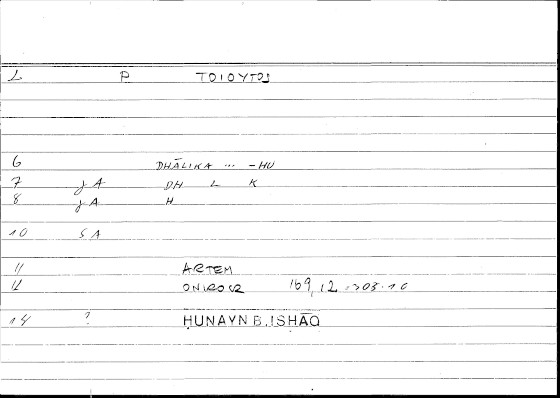 L P TOIOYTOS
6 DHĀLIKA ... -HU
7 JA DH L K
8 JA H
10 SA
11 ARTEM
12 ONIROCR 169,12
14 ? ḤUNAYN B. ISḤĀQ